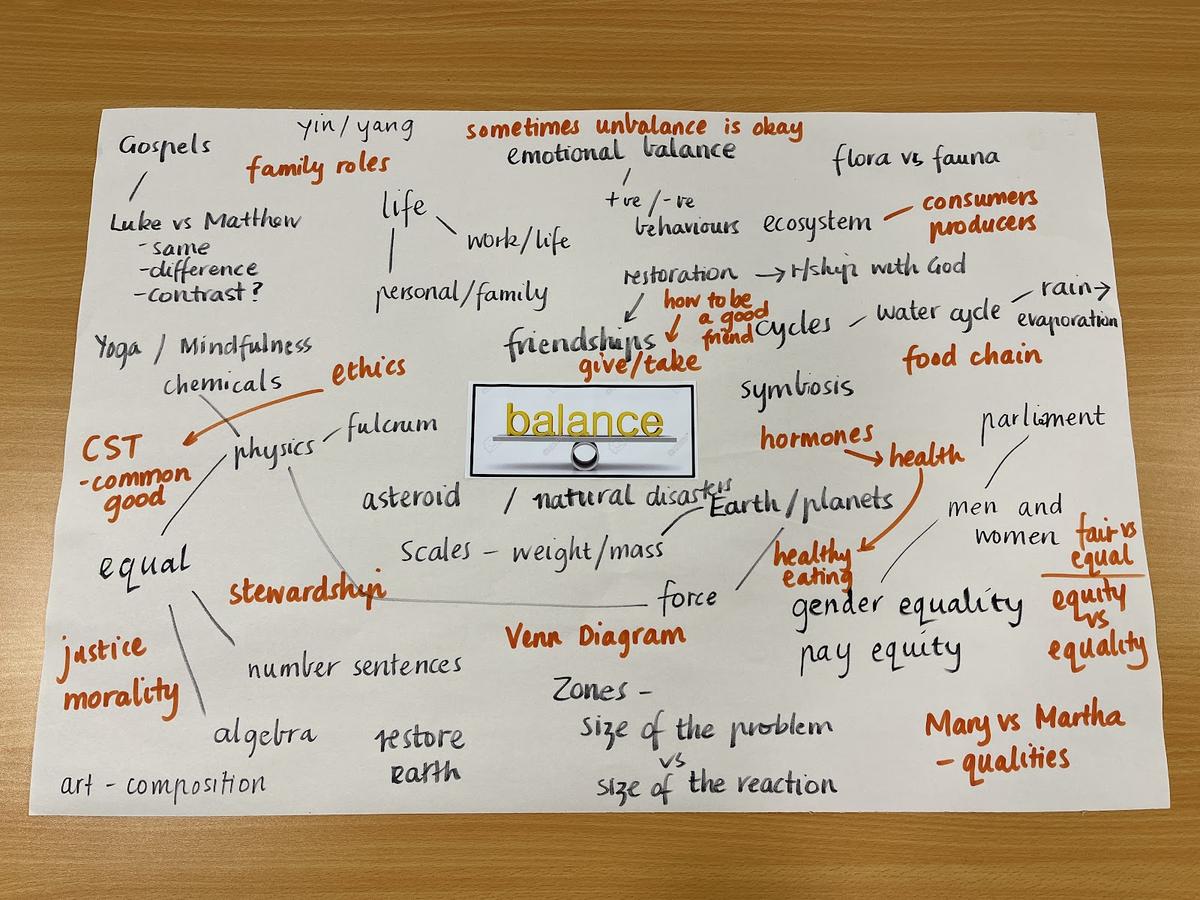 Gospels
Luke vs Matthew
-same
-difference
-contrast?
yin/yang
family roles
life
work/life
personal/family
sometimes unbalance is okay
emotional balance
+ve/-ve
behaviours
flora vs fauna
ecosystem
consumers
producers
restoration → r/ship with God
how to be
a good
friend
friendships
give/take
cycles
water cycle
rain→
evaporation
food chain
Yoga / Mindfulness
chemicals
ethics
physics
fulcrum
CST
-common
good
balance
symbiosis
hormones
health
healthy
eating
parliment
men and
women
fair vs
equal
equity
vs
equality
gender equality
pay equity
asteroid / natural disasters
Earth/planets
Scales - weight/mass
force
equal
stewardship
Venn Diagram
justice
morality
number sentences
algebra
art - composition
restore
earth
Zones -
size of the problem
vs
size of the reaction
Mary vs Martha
- qualities